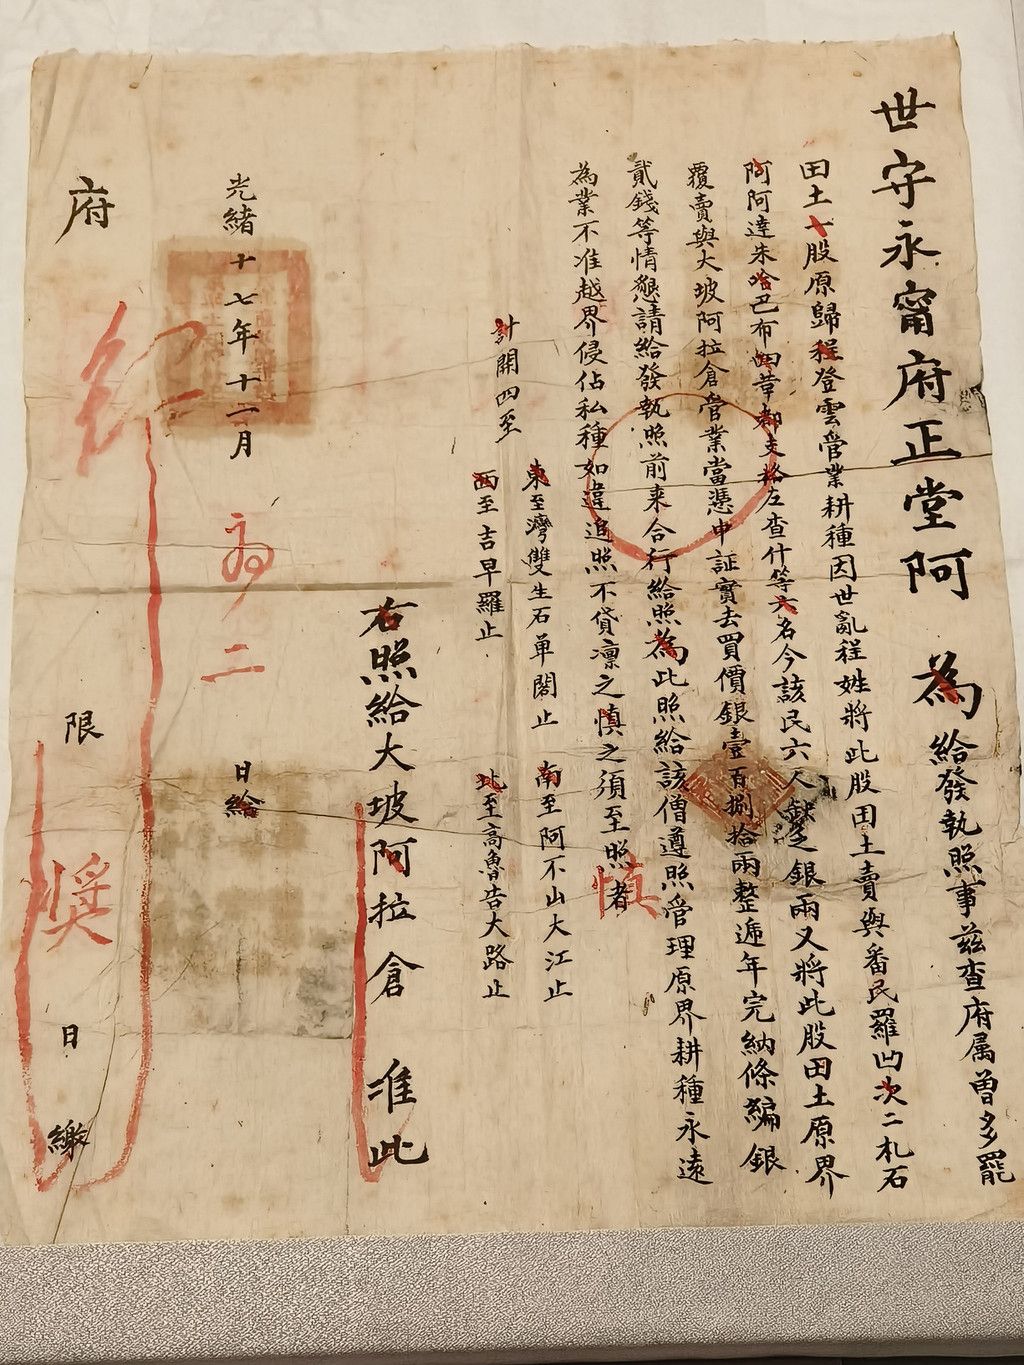 世守永甯府正堂阿 為給發執照事茲查府属曾多罷
田土一股原歸程登雲管業耕種因世亂程姓將此股田土賣與番民羅凹次二札石
阿阿達朱哈巴布 章都支格左查什等六名今該民六人缺乏銀兩又將此股田土原界
覆賣與大坡阿拉倉管業當憑中証實去買價銀壹百捌拾兩整遞年完納條編銀
貳錢等情懇請給發執照前来合行給照為此照給該僧遵照管理原界耕種永遠
為業不准越界侵佔私種如違追照不貸凛之慎之須至照者
慎
計開四至
東至灣雙生石单閣止 南至阿不山大江止
西至吉早羅止 北至高魯告大路止
右照給大坡阿拉倉 准此
光緒十七年十二月 初二 日給
府 限 日繳